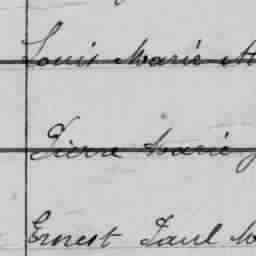 Louis Marie
Pierre Marie
Ernest Paul